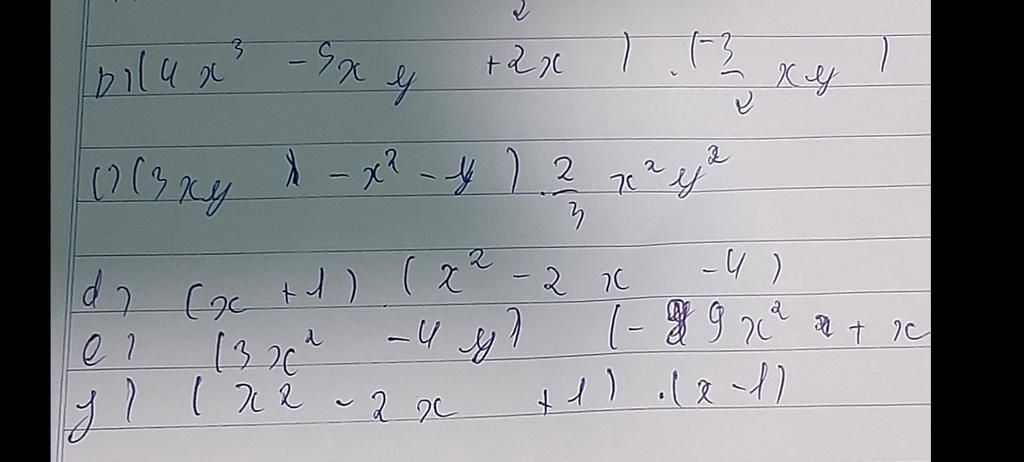 2
b) (4x³ - 5xy + 2x) . (-3/2 xy)
c) (3xy - x² - y) . 2/3 x²y²
d) (x + 1) (x² - 2x - 4)
e) (3x² - 4y) (- 9x² + x
y) (x2 - 2x + 1) . (x - 1)